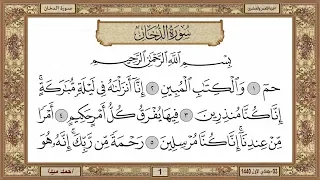 سورة الدخان
سُورَةُ الدُّخَانِ
بِسْمِ اللَّهِ الرَّحْمَٰنِ الرَّحِيمِ
حمٓ ١ وَالْكِتَابِ الْمُبِينِ ٢ إِنَّا أَنزَلْنَاهُ فِي لَيْلَةٍ مُّبَارَكَةٍ ۚ
إِنَّا كُنَّا مُنذِرِينَ ٣ فِيهَا يُفْرَقُ كُلُّ أَمْرٍ حَكِيمٍ ٤ أَمْرًا
مِّنْ عِندِنَا ۚ إِنَّا كُنَّا مُرْسِلِينَ ٥ رَحْمَةً مِّن رَّبِّكَ ۚ إِنَّهُ هُوَ
1440
1